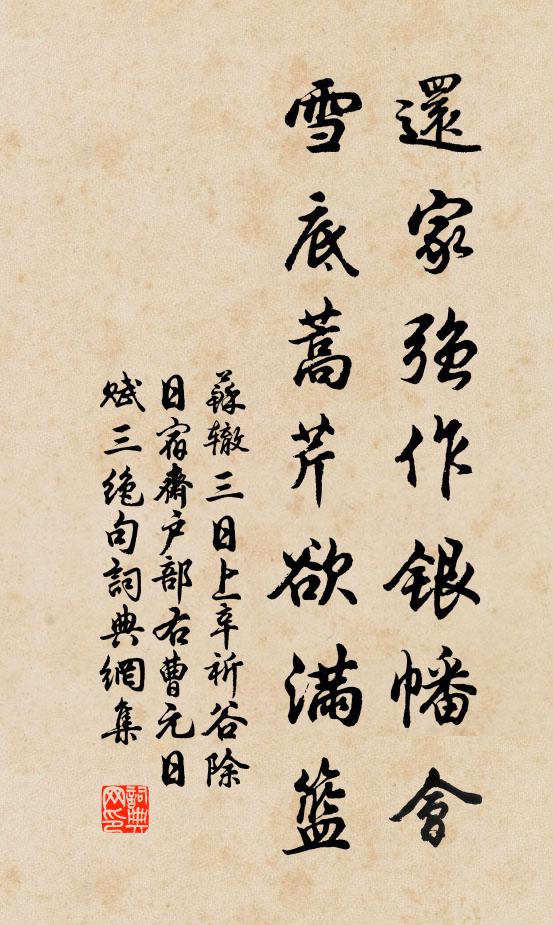 還家強作銀幡會
雪底蒿芹欲滿籃
蘇辙三日上辛祈谷除
日宿齋戶部右曹元日
賦三絕句詞典網集
詞典網印